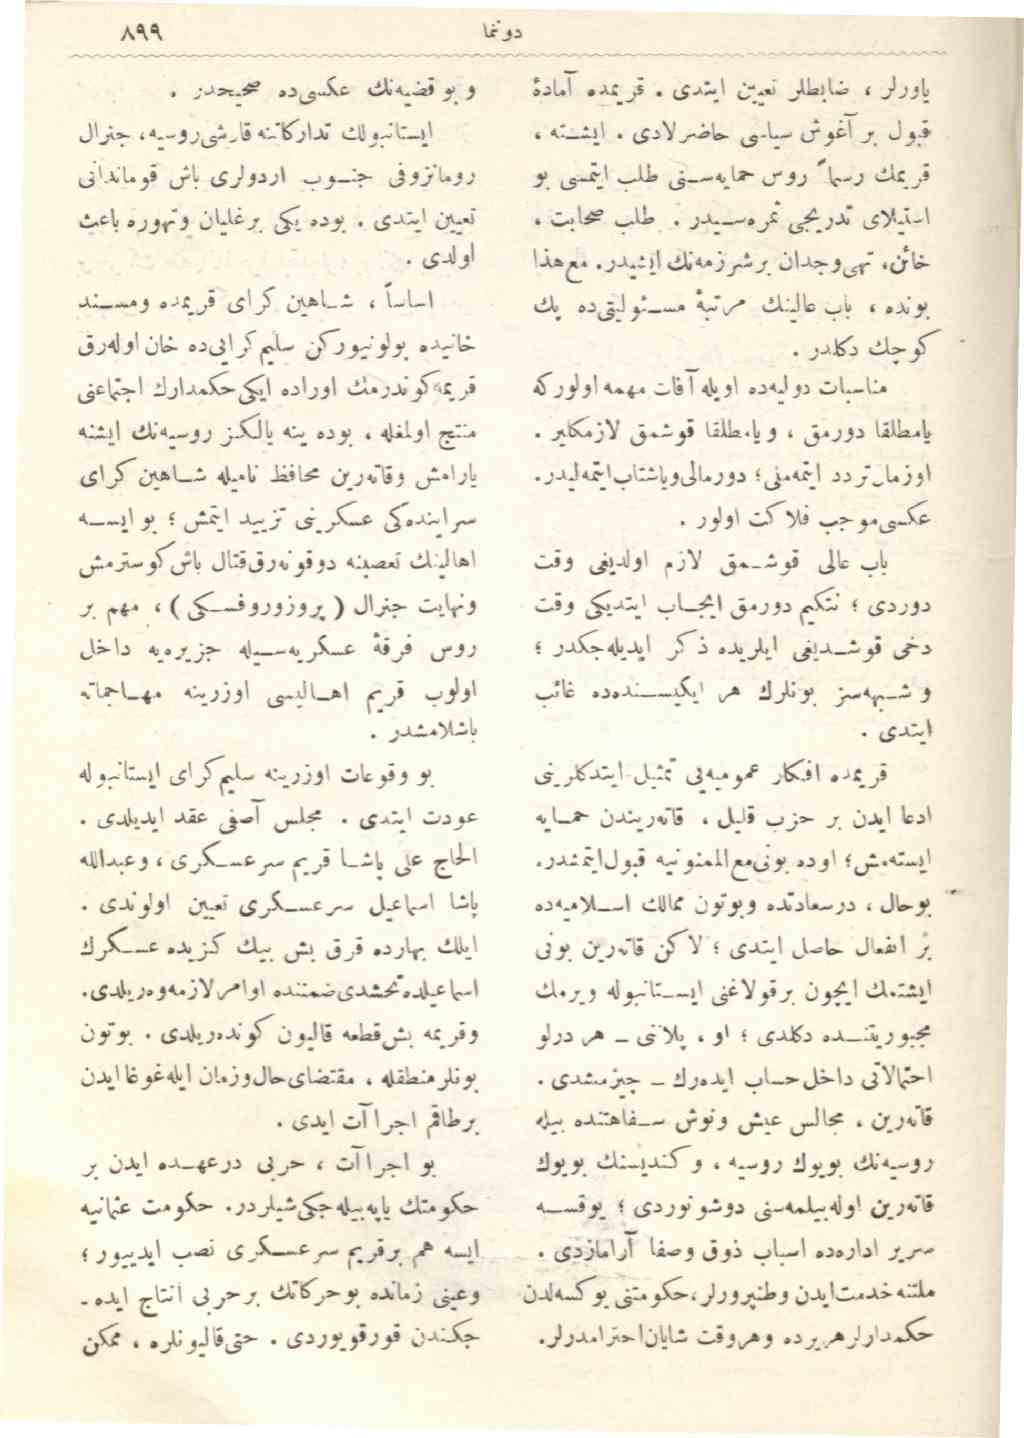 دوننما
٨٩٩
ياورلر ، ضابطلر تعيين ايتدى . قريمده آمادۀ
قبول بر آغوش سياسى حاضرلادى . ايشته ،
قريمك رسماً روس حمايه‌سنى طلب ايتمسى بو
استيلاى تدريجى ثمره‌سيدر . طلب صحابت ،
خائن، تهى وجدان برشرزمه‌نك ايشيدر. مع هذا
بونده ، باب عالينك مرتبۀ مسئوليتى‌ده پك
كوچك دكلدر .
مناسبات دوليه‌ده اويله آفات مهمه اولوركه
يامطلقا دورمق ، ويامطلقا قوشمق لازمكلير .
اوزمان تردد ايتمه‌ملى؛ دورمالى وياشتاب ايتمه‌ليدر.
عكسى موجب فلاكت اولور .
باب عالى قوشمق لازم اولديغى وقت
دوردى ؛ نتكيم دورمق ايجاب ايتديكى وقت
دخى قوشديغى ايلريده ذكر ايديله‌جكدر ؛
و شبهه‌سز بونلرك هر ايكيسنده‌ده غائب
ايتدى .
قريمده افكار عموميه‌يى تمثيل ايتدكلرينى
ادعا ايدن بر حزب قليل ، قاته‌ريندن حمايه
ايسته‌مش؛ اوده بونى مع‌الممنونيه قبول ايتمشدر.
بوحال ، درسعادتده وبوتون ممالك اسلاميه‌ده
بر انفعال حاصل ايتدى ؛ لاكن قاته‌رين بونى
ايشتمك ايچون برقولاغنى ايستانبوله ويرمك
مجبوريتنده دكلدى ؛ او ، پلاننى ـ هر درلو
احتمالاتى داخل حساب ايده‌رك ـ چيزمشدى .
قاته‌رين ، مجالس عيش ونوش سفاهتنده بيله
روسيه‌نك بويوك روسيه ، وكنديسنك بويوك
قاته‌رين اوله‌بيلمه‌سنى دوشونوردى ؛ يوقسه
سرير اداره‌ده اسباب ذوق وصفا آرامازدى .
ملتنه خدمت ايدن وطنپرورلر، حكومتنى يوكسه‌لدن
حكمدارلر هريرده وهروقت شايان احترامدرلر.
و بو قضيه‌نك عكسى‌ده صحيحدر .
ايستانبولك تداركاتنه قارشى روسيه، جنرال
رومانزوفى جنوب اردولرى باش قوماندانى
تعيين ايتدى . بوده يكى برغليان وتهوره باعث
اولدى .
اساساً ، شاهين كراى قريمده ومسند
خانيده بولونيوركن سليم كرايى‌ده خان اوله‌رق
قريمه كوندرمك اوراده ايكى حكمدارك اجتماعنى
منتج اولمغله ، بوده ينه يالكز روسيه‌نك ايشنه
يارامش وقاته‌رين محافظ ناميله شاهين كراى
سراينده‌كى عسكرينى تزييد ايتمش ؛ بو ايسه
اهالينك تعصبنه دوقونه‌رق قتال باش كوسترمش
ونهايت جنرال ( پروزوروفسكى ) ، مهم بر
روس فرقۀ عسكريه‌سيله جزيره‌يه داخل
اولوب قريم اهاليسى اوزرينه مهاجماته
باشلامشدر .
بو وقوعات اوزرينه سليم كراى ايستانبوله
عودت ايتدى . مجلس آصفى عقد ايديلدى .
الحاج على پاشا قريم سرعسكرى ، وعبدالله
پاشا اسماعيل سرعسكرى تعيين اولوندى .
ايلك بهارده قرق بش بيك كزيده عسكرك
اسماعيلده تحشدى ضمننده اوامر لازمه ويريلدى.
وقريمه بش قطعه قاليون كونده‌ريلدى . بوتون
بونلر منطقله ، مقتضاى حال وزمان ايله غوغا ايدن
برطاقم اجراآت ايدى .
بو اجراآت ، حربى درعهده ايدن بر
حكومتك ياپه‌بيله‌جكى شيلردر. حكومت عثمانيه
ايسه هم برقريم سرعسكرى نصب ايدييور ؛
وعينى زمانده بوحركاتك برحربى انتاج ايده‌ـ
جكندن قورقويوردى . حتى قاليونلره ، ممكن